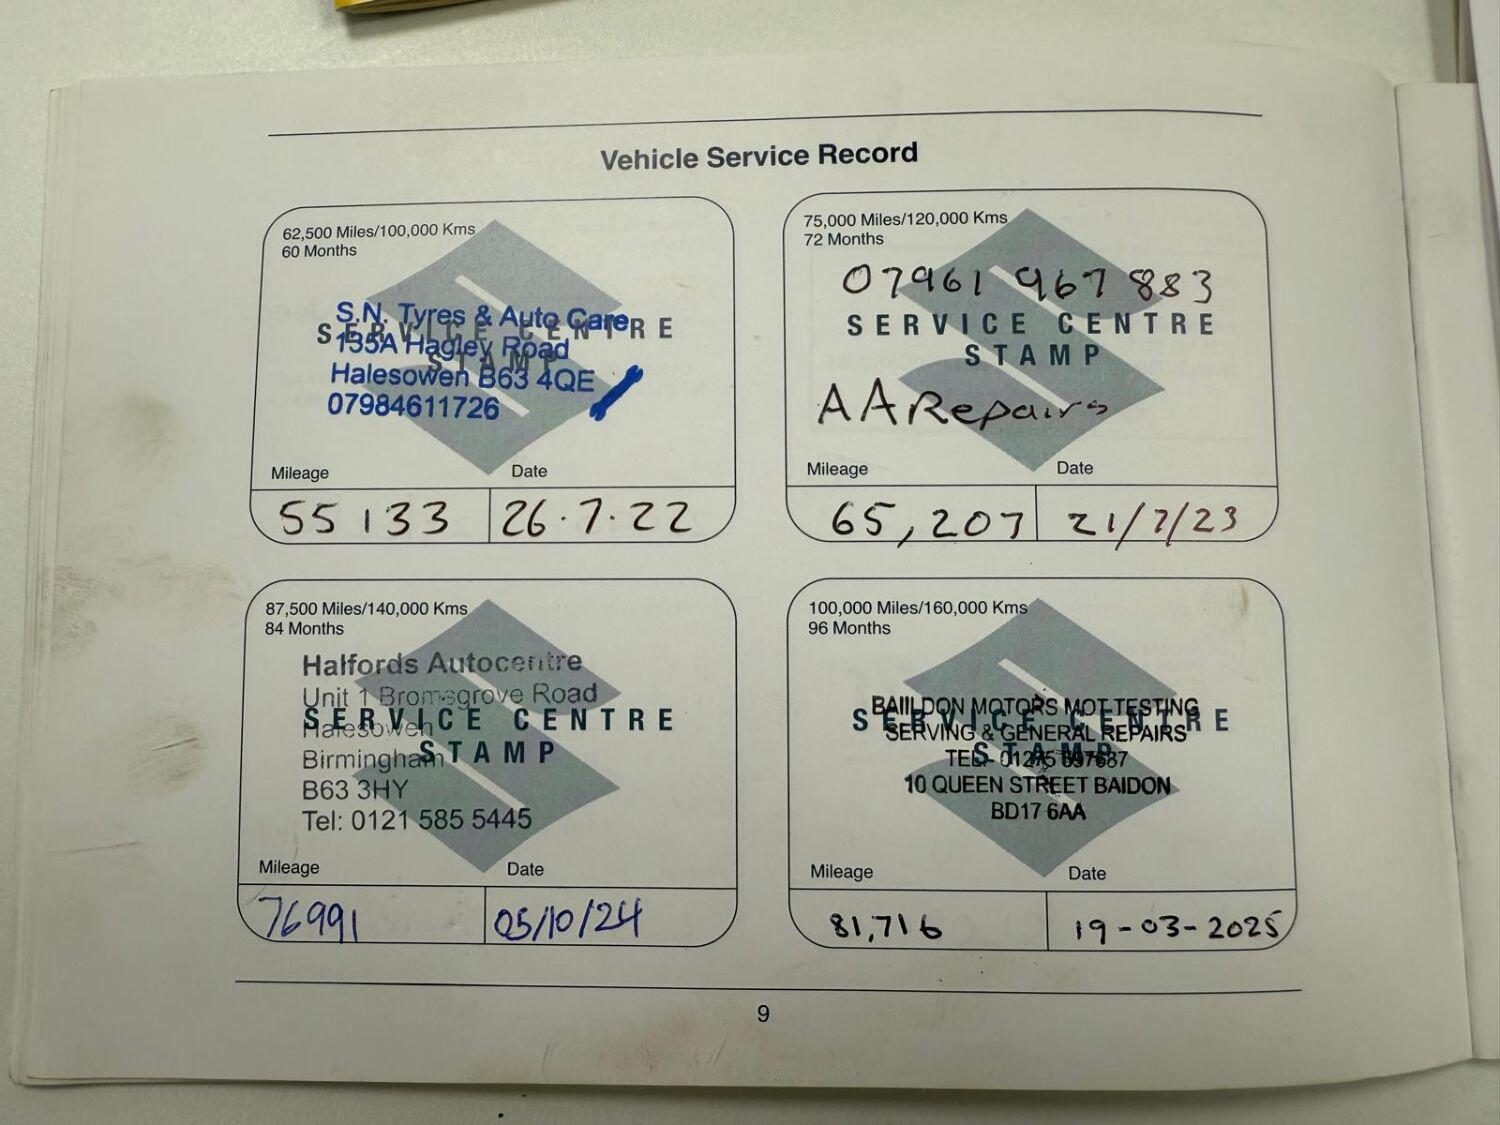 Vehicle Service Record
62,500 Miles/100,000 Kms
60 Months
S.N. Tyres & Auto Care
SERVICE CENTRE
135A Hagley Road
STAMP
Halesowen B63 4QE
07984611726
Mileage
Date
55133
26.7.22
75,000 Miles/120,000 Kms
72 Months
07961 967 883
SERVICE CENTRE
STAMP
AA Repairs
Mileage
Date
65,207
21/7/23
87,500 Miles/140,000 Kms
84 Months
Halfords Autocentre
Unit 1 Bromsgrove Road
SERVICE CENTRE
Halesowen
STAMP
Birmingham
B63 3HY
Tel: 0121 585 5445
Mileage
Date
76991
05/10/24
100,000 Miles/160,000 Kms
96 Months
BAIILDON MOTORS MOT TESTING
SERVICE CENTRE
SERVING & GENERAL REPAIRS
STAMP
TEL-
10 QUEEN STREET BAIDON
BD17 6AA
Mileage
Date
81,716
19-03-2025
9